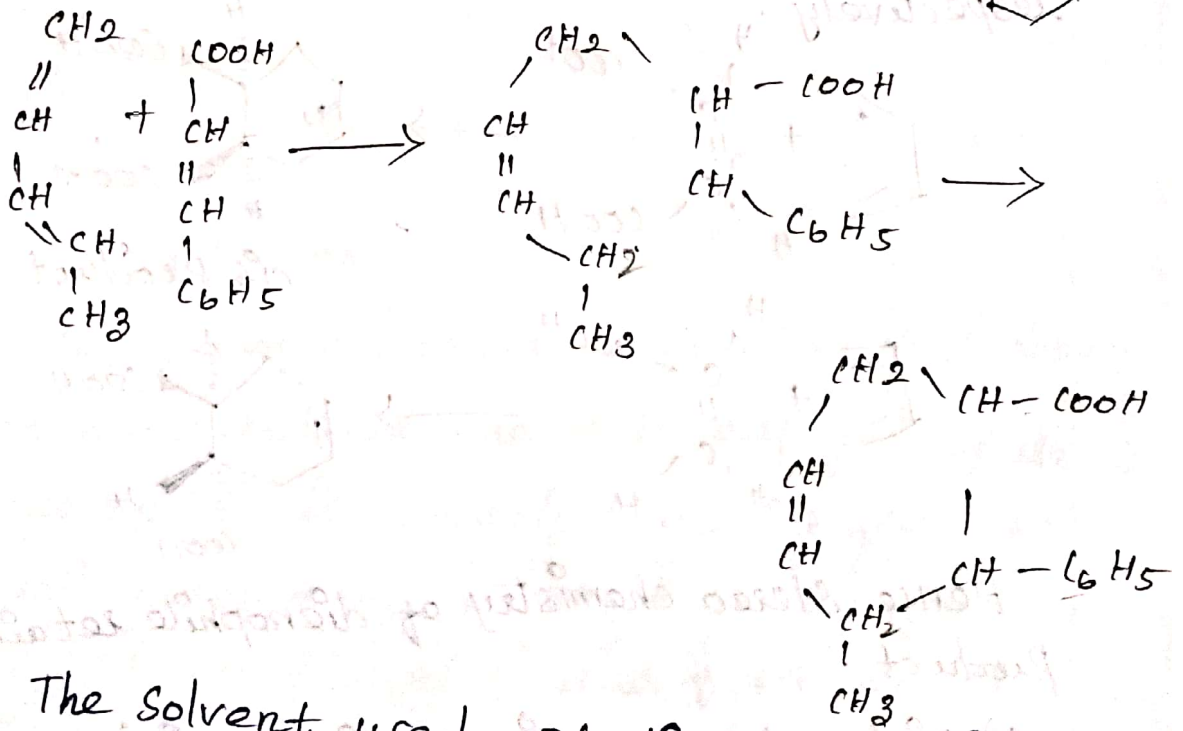 CH2
||
CH
|
CH
\\ CH
|
CH3
+
COOH
|
CH
||
CH
|
C6H5
→
CH2
CH
||
CH
CH2
|
CH3
CH - COOH
|
CH
C6H5
→
CH2
CH - COOH
CH
||
CH
|
CH - C6H5
CH2
|
CH3
The Solvent